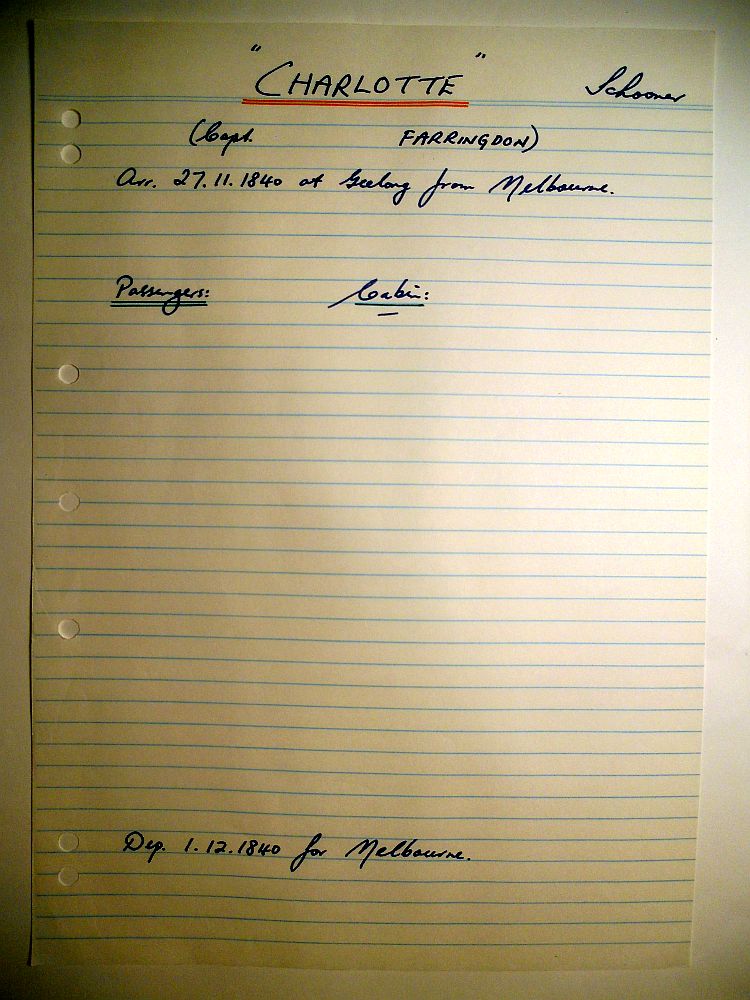 "CHARLOTTE" Schooner
(Capt. FARRINGDON)
Arr. 27.11.1840 at Geelong from Melbourne.
Passengers: Cabin:
Dep. 1.12.1840 for Melbourne.